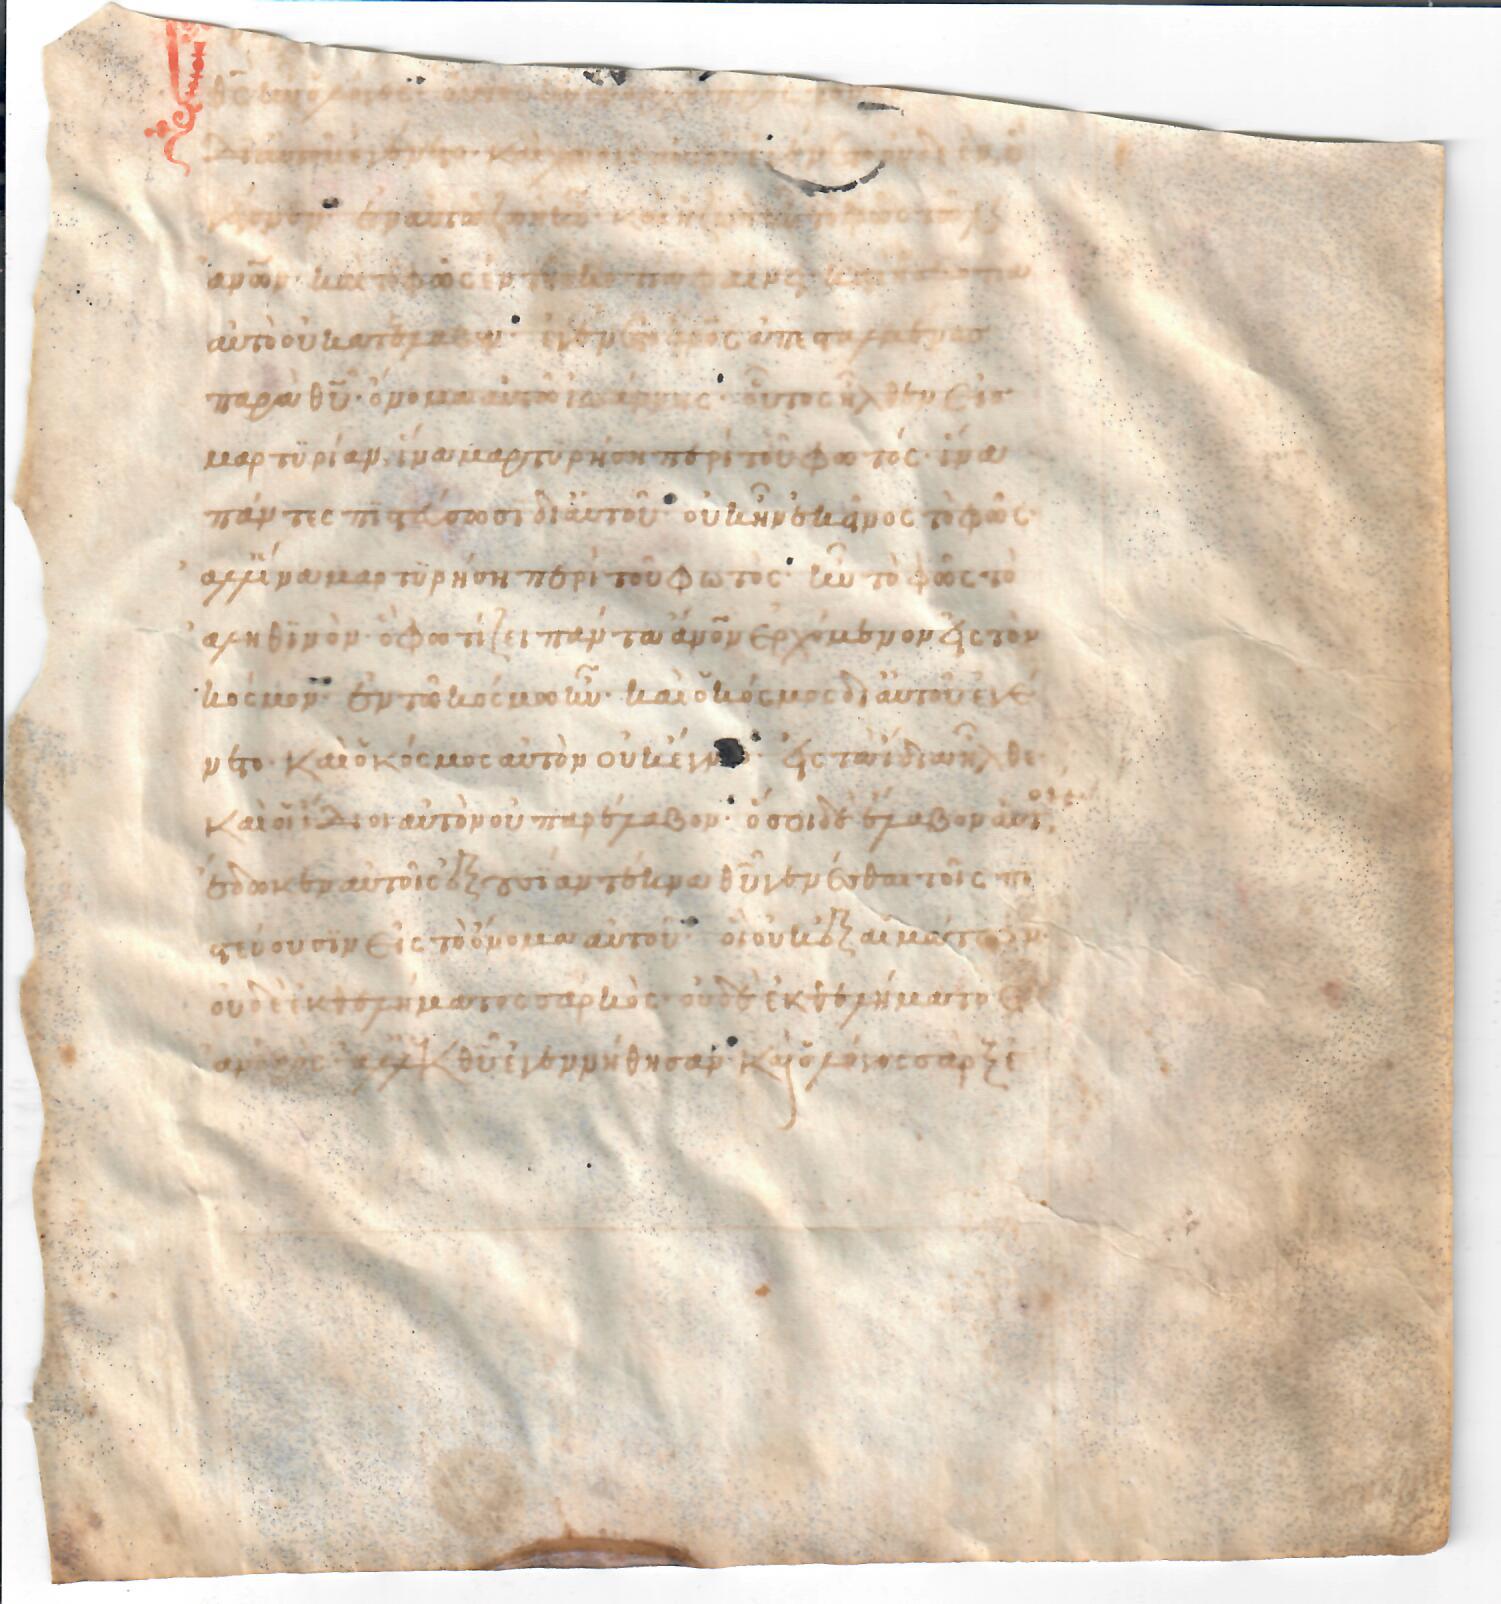 θς ην ο λογος
δι αυτου εγενετο· και χωρις αυτου εγενετο ουδε εν ὃ
γέγονεν· ἐν αυτω ζωὴ ην· και ἡ ζωὴ ην το φως των
ἀνων· και τὸ φῶς ἐν τη σκοτια φαίνει καὶ ἡ σκοτια
αὐτὸ οὐ κατέλαβεν· ἐγένετο ἀνος ἀπεσταλμένος
παρὰ θυ· ὄνομα αὐτῶ ἰωάννης· οὗτος ἦλθεν εἰσ
μαρτϋρίαν, ἵνα μαρτυρήση περὶ τοῦ φωτός· ἵνα
πάντες πιστεύσωσι δι αὐτοῦ· οὐκ ἦν ἐκεῖνος τὸ φῶς·
ἀλλ ἵνα μαρτϋρήση περὶ τοῦ φωτὸς· ἦν τὸ φῶς τὸ
ἀληθϊνὸν· ὃ φωτίζει πάντα ἄνον ἐρχόμενον εἰς τὸν
κόσμον· ἐν τῶ κόσμω ἦν· καὶ ὁ κόσμος δι αὐτοῦ ἐγέ
νετο· καὶ ὁ κόσμος αὐτὸν οὐκ ἔγνω· εἰς τὰ ἴδια ἦλθε·
καὶ οἱ ἴδιοι αὐτὸν οὐ παρέλαβον· ὅσοι δὲ ἔλαβον αὐτὸν
ἔδωκεν αὐτοῖς ἐξουσίαν τέκνα θυ γενέσθαι τοῖς πι
στεύουσϊν εἰς τὸ ὄνομα αὐτοῦ· οἳ οὐκ ἐξ αἱμάτων·
οὐδὲ ἐκ θελήματος σαρκὸς· οὐδὲ ἐκ θελήματοσ
ἀνδρὸς· ἀλλ ἐκ θυ ἐγεννήθησαν· Καὶ ὁ λόγος σὰρξ ἐ